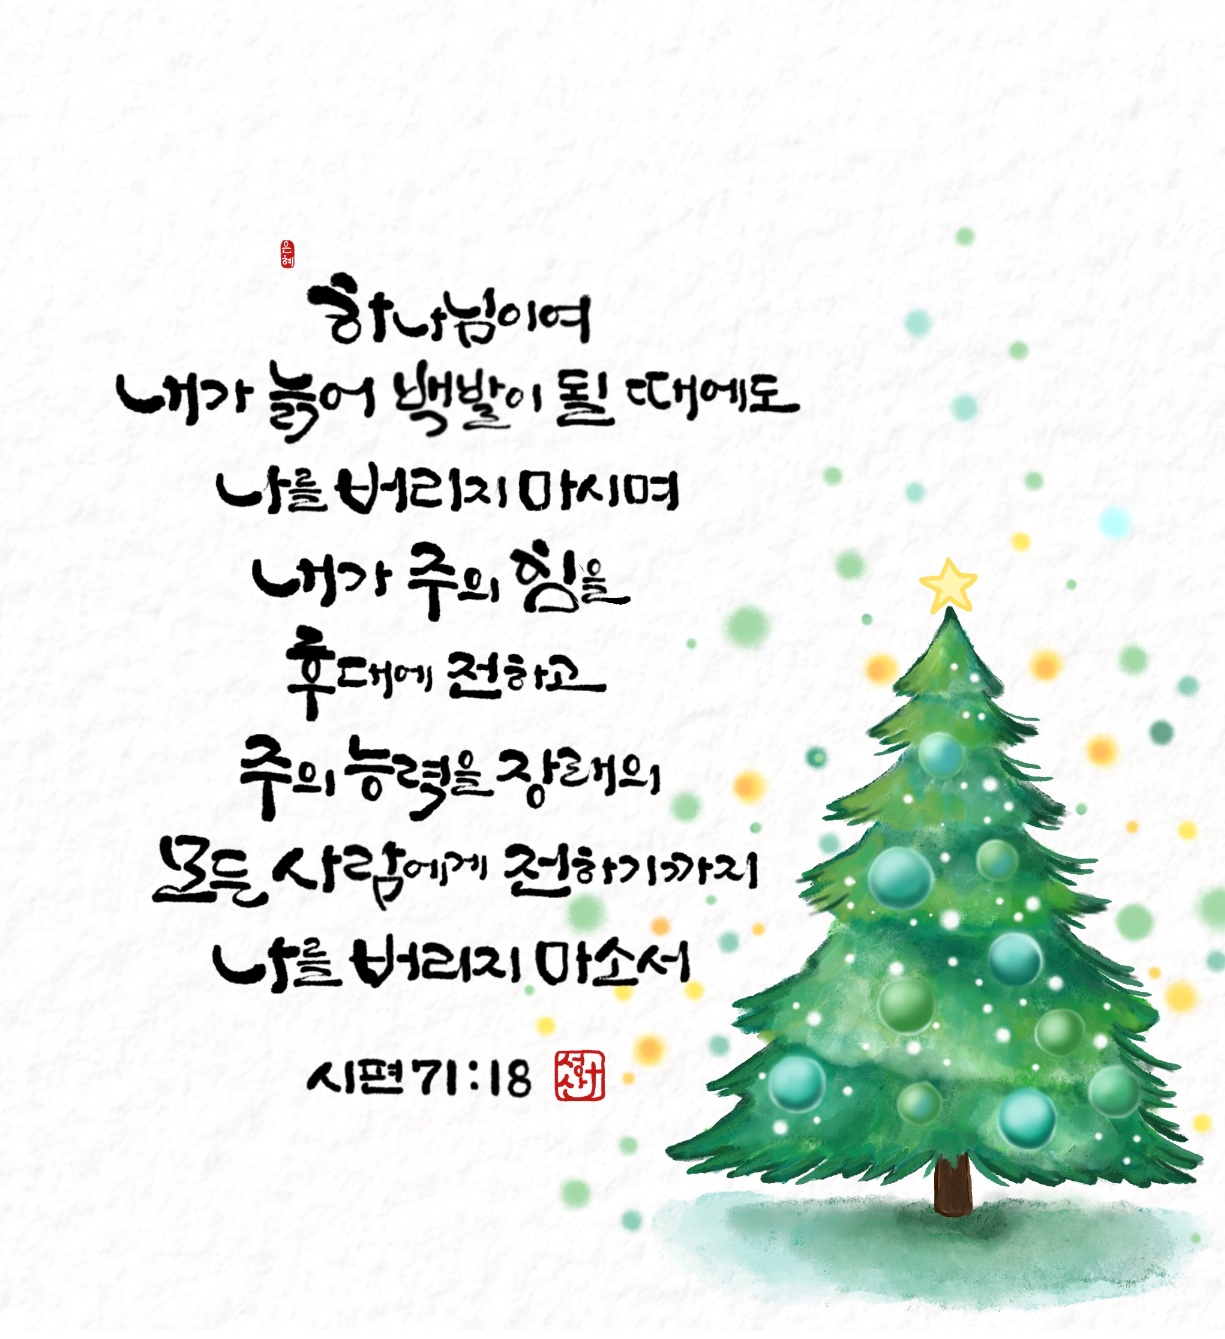 은혜
하나님이여
내가 늙어 백발이 될 때에도
나를 버리지 마시며
내가 주의 힘을
후대에 전하고
주의 능력을 장래의
모든 사람에게 전하기까지
나를 버리지 마소서
시편 71:18